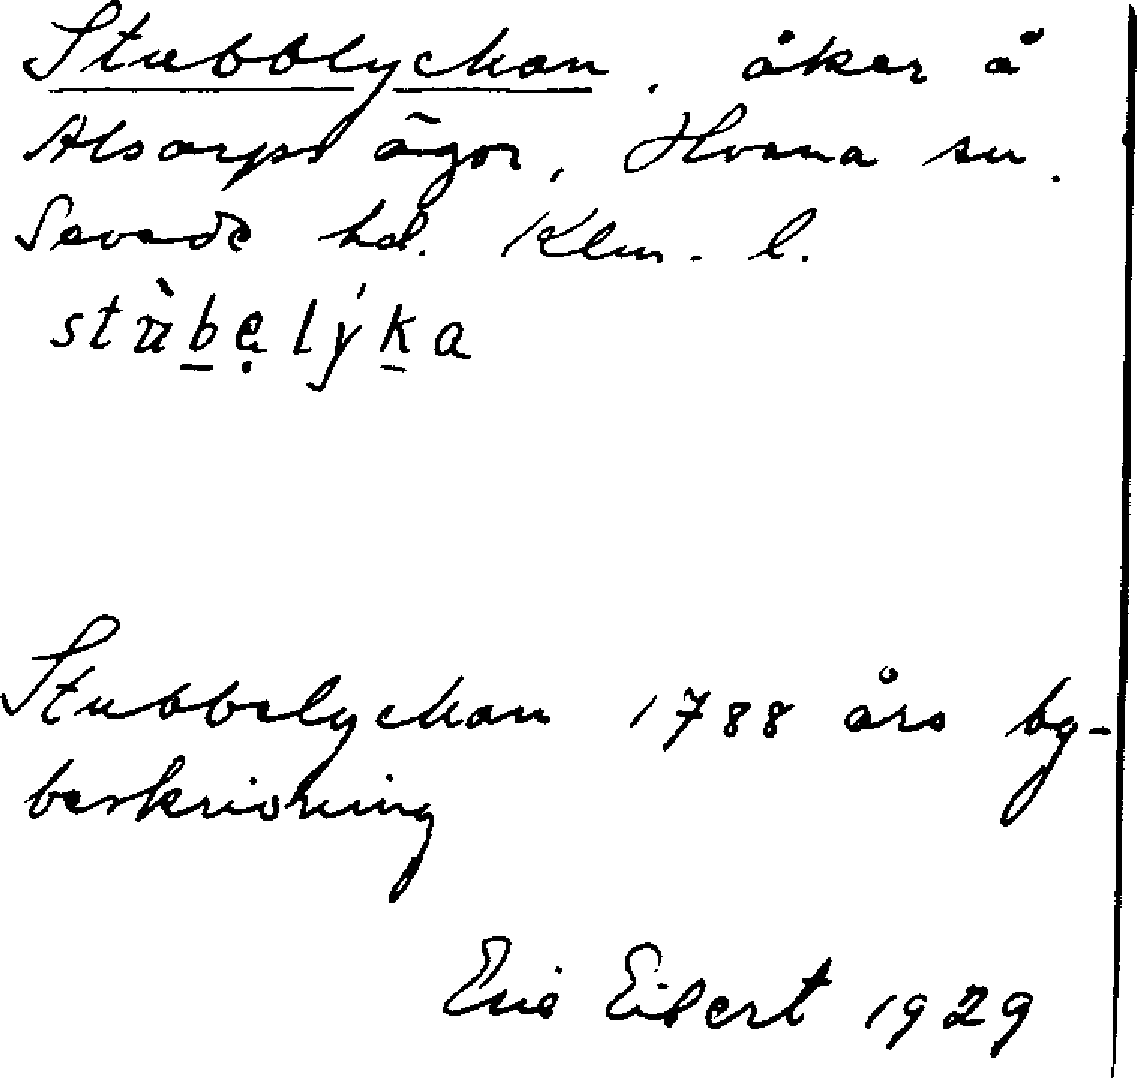 Stubblyckan. åker å
Alsarps ägor, Hvena sn.
Sevede hd. Klm. l.
stùbẹlýka
Stubbelyckan 1788 års by-
beskrivning
Eric Eibert 1929